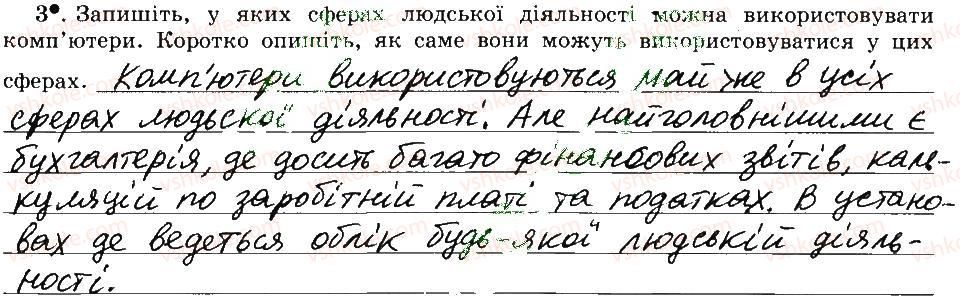 3•. Запишіть, у яких сферах людської діяльності можна використовувати
комп'ютери. Коротко опишіть, як саме вони можуть використовуватися у цих
сферах. Комп'ютери використовуються май же в усіх
сферах людьскої діяльності. Але найголовнішими є
бухгалтерія, де досить багато фінансових звітів, каль-
куляцій по заробітній платі та податках. В устано-
вах де ведеться облік будь-якої людській діяль-
ності.